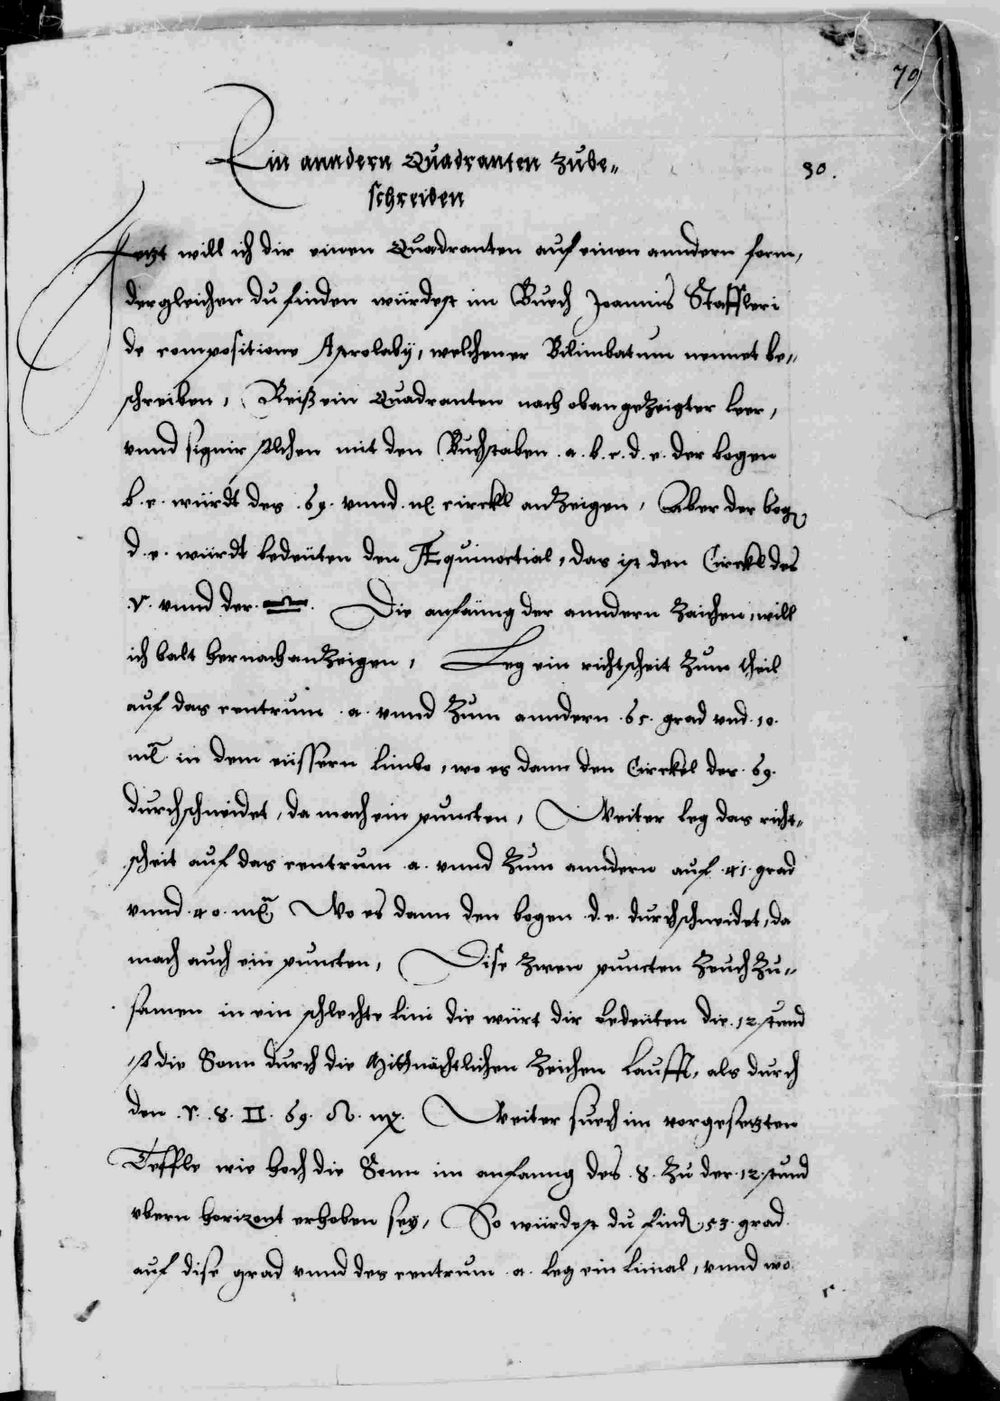 79
Ein anndern Quadranten zube-
schreiben
30.
Jetzt will ich dir einen Quadranten auf einen anndern form,
dergleichen du finden würdest im Buech Joannis Stoffleri
de compositione Astrolabÿ, welchen er Bilimbatum nennet be-
schreiben, Reiß ein Quadranten nach obangezeigter leer,
vnnd signir solchen mit den Buchstaben .a. b. c. d. e. der bogen
b. c. würdt des .♋. vnnd .♑. circkl anzeigen, Aber der bogen
d. e. würdt bedeüten den Æquinoctial, das ist den Circkl des
.♈. vnnd der .♎. Die anfanng der anndern Zaichen, will
ich balt hernach anzeigen, Leg ein richtscheit zum theil
auf das centrum .a. vnnd zum anndern .65. grad vnd .10.
mi. in dem eüssern limbo, wo es dann den Circkel der .♋.
durchschneidet, da mach ein puncten, Weiter leg das richt-
scheit auf das centrum .a. vnnd zum anndern auf .41. grad
vnnd .40. mi. Wo es dann den bogen .d. e. durchschneidet, da
mach auch ein puncten, Dise zwen puncten zeuch zu-
samen in ein schlechte lini die würt dir bedeüten die .12. stund
so die Sonn durch die Mitnächtlichen Zeichen laufft, als durch
den .♈. ♉. ♊. ♋. ♌. ♍. Weiter such im vorgesetzten
Teffle wie hoch die Sonn im anfanng des .♉. zu der .12. stund
vbern horizont erhoben sey, So würdest du finden .53. grad
auf dise grad vnnd des centrum .a. leg ein linial, vnnd wo